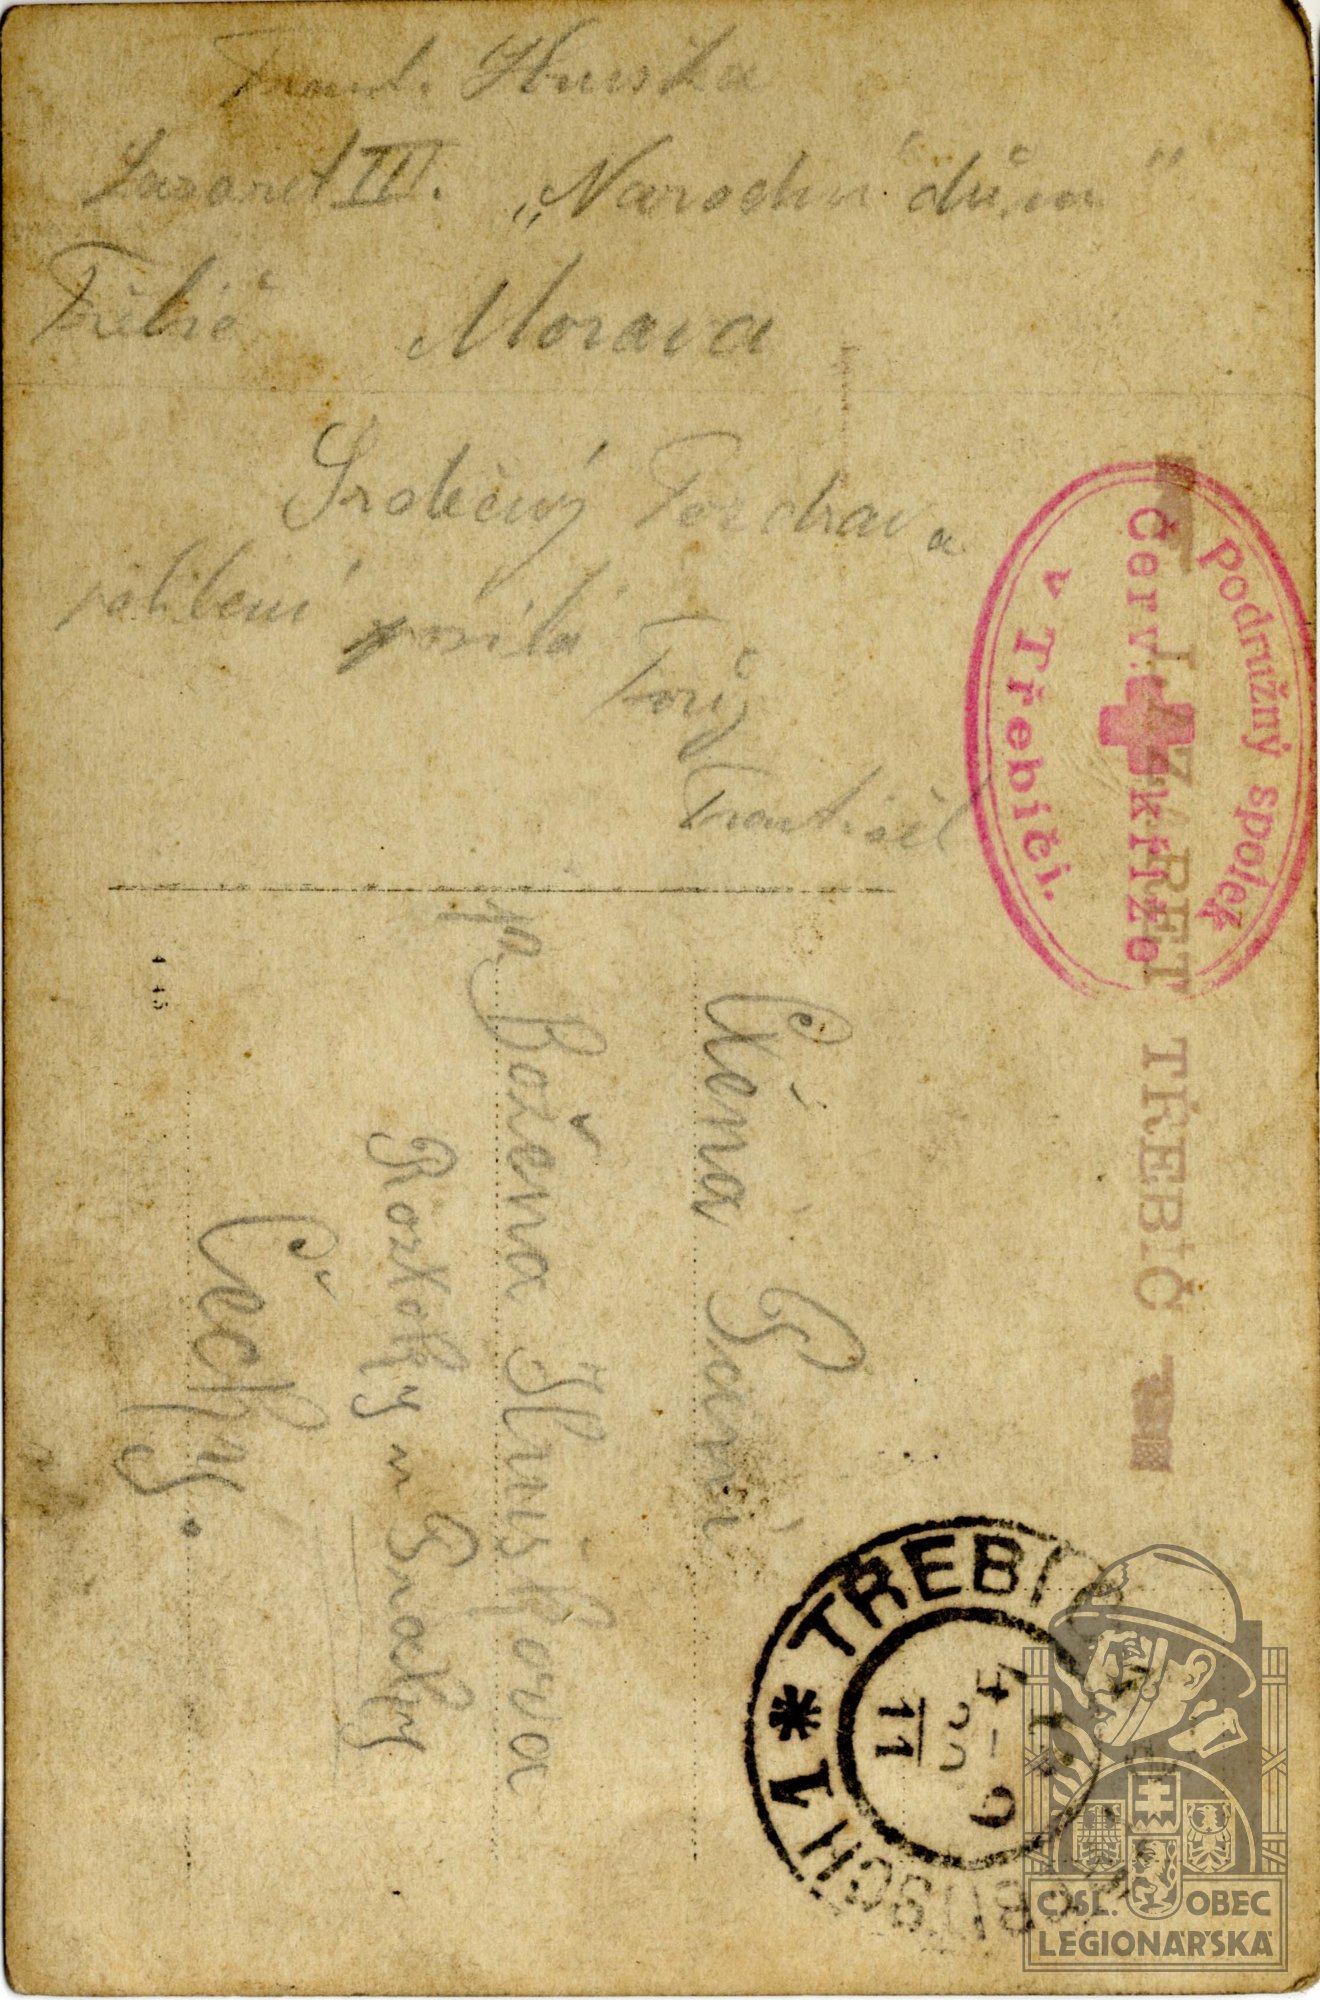 Frant. Hruška
Lazaret III. „Narodní dům"
Třebíč Morava
Srdečný Pozdrav a
políbení posílá
Tvůj
František
Ctěná Paní
pa Božena Hrušková
Roztoky u Prahy
Čechy.
Podružný spolek
Červ. kříže
v Třebíči.
LAZARET TŘEBIČ
TŘEBÍČ
TREBITSCH 1
11
ČSL. OBEC
LEGIONÁŘSKÁ